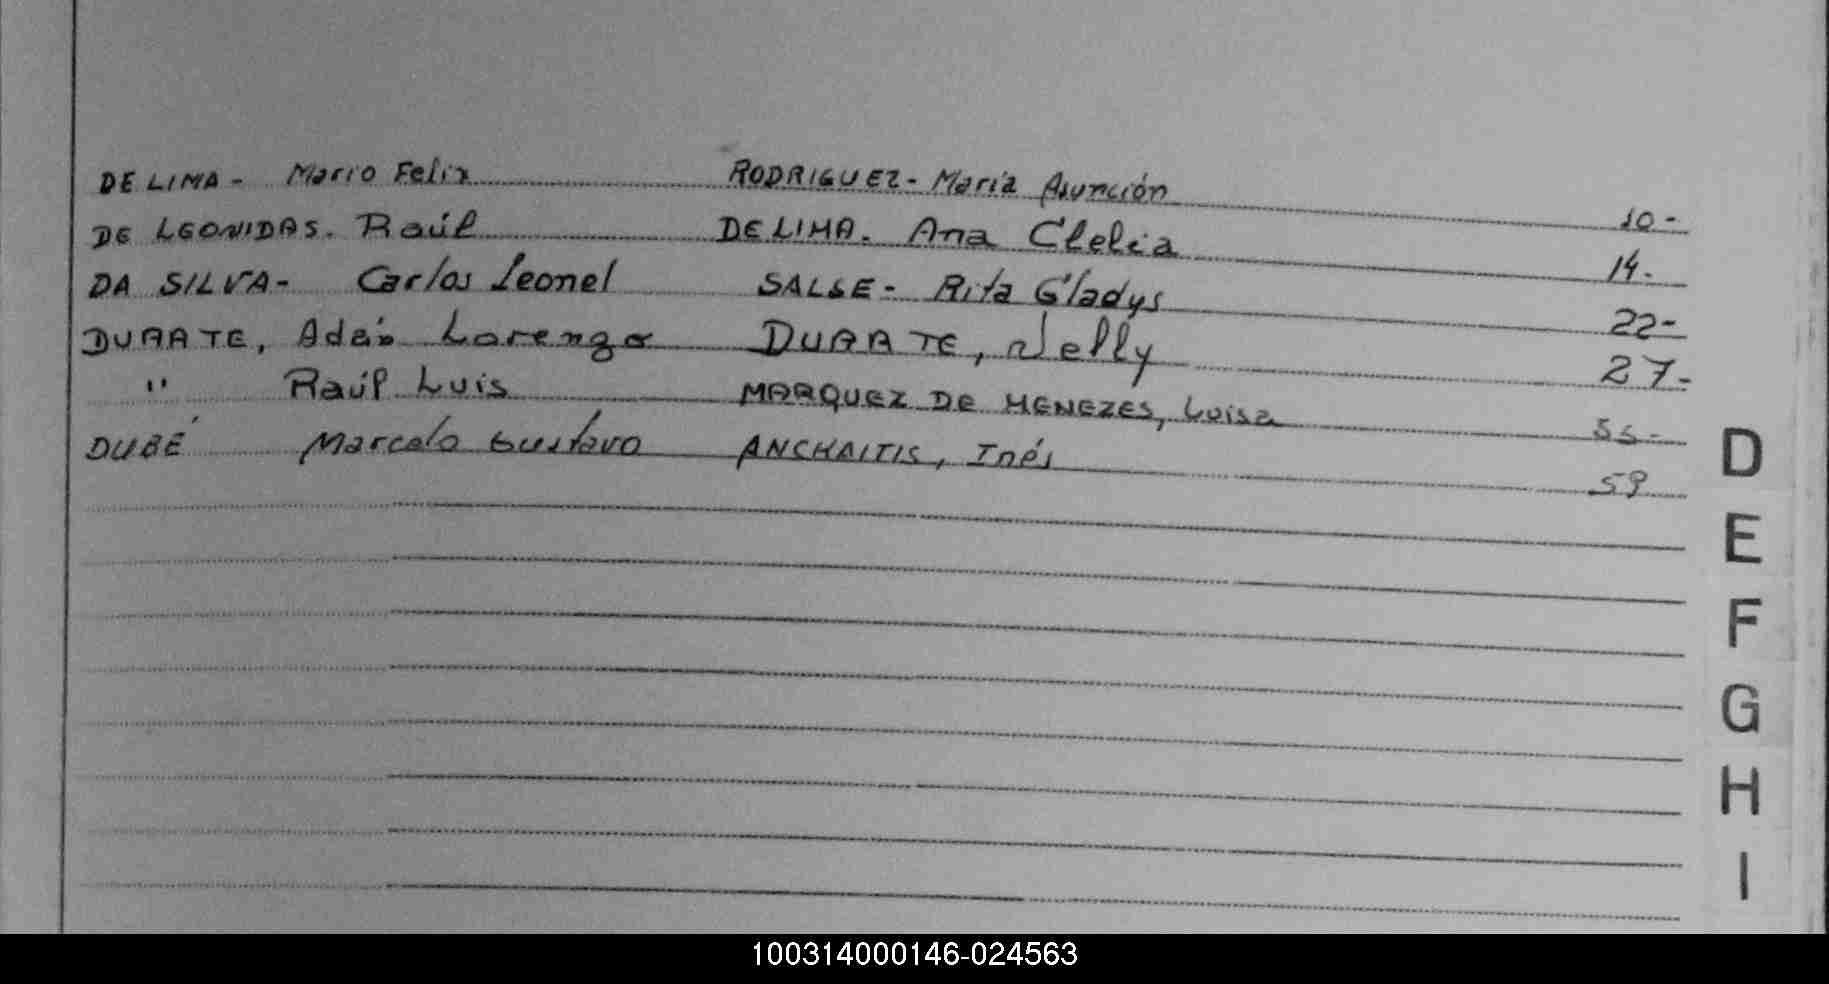 DE LIMA - Mario Felix RODRIGUEZ - María Asunción 10 -
DE LEONIDAS. Raúl DE LIMA. Ana Clelia 14 -
DA SILVA - Carlos Leonel SALSE - Rita Gladys 22 -
DUARTE, Adán Lorenzo DUARTE, Nelly 27 -
" Raúl Luis MARQUEZ DE MENEZES, Luisa
DUBÉ Marcelo Gustavo ANCHAITIS, Inés 59
D
E
F
G
H
I
100314000146-024563